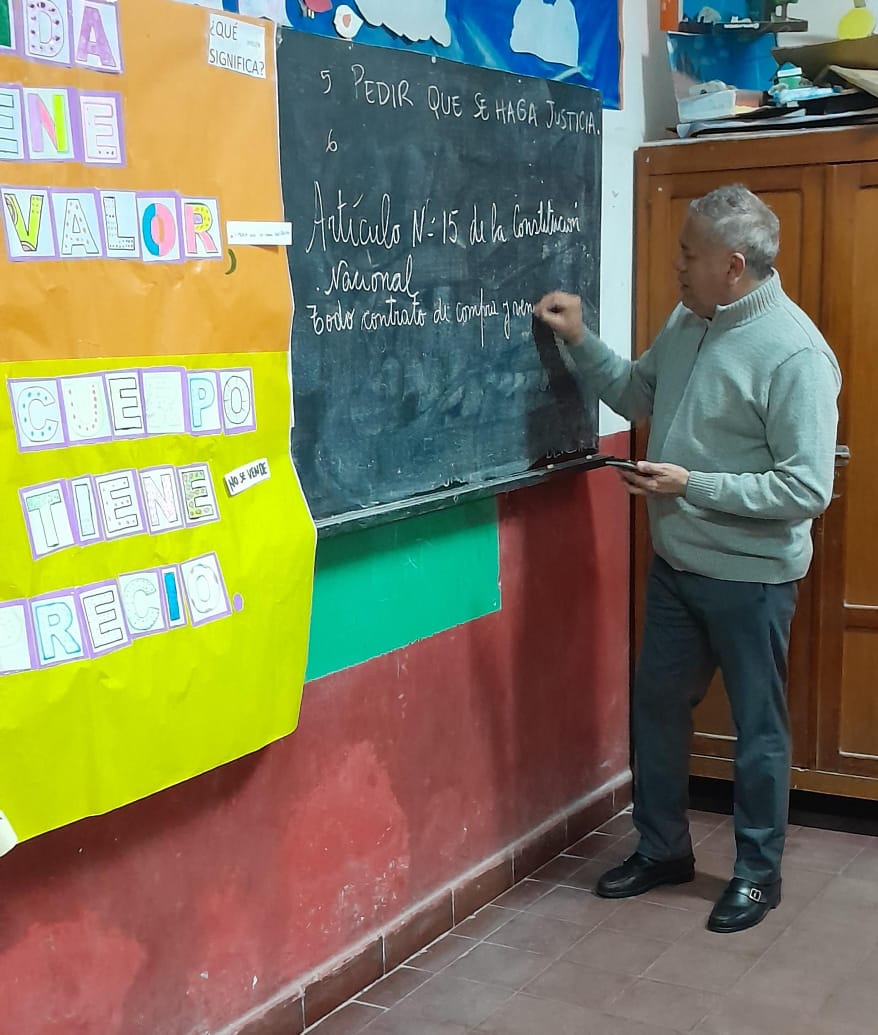 DA
¿QUÉ
SIGNIFICA?
ENE
VALOR,
CUE PO
TIENE
NO SE VENDE
RECIO.
5 PEDIR QUE SE HAGA JUSTICIA.
6
Artículo Nº 15 de la Constitución
Nacional
Todo contrato de compra y ven